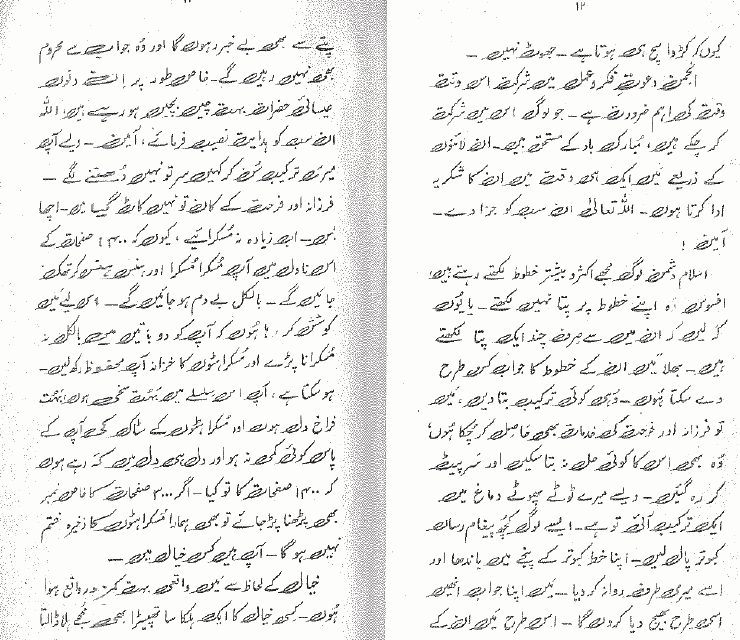 ۱۲
کیوں کہ کڑوا سچ ہی ہوتا ہے ۔ جھوٹ نہیں ۔
انجمن دعوتِ فکر و عمل میں شرکت اس وقت
وقت کی اہم ضرورت ہے ۔ جو لوگ اس میں شرکت
کر چکے ہیں، مُبارک باد کے مستحق ہیں ۔ ان لائنوں
کے ذریعے مَیں ایک ہی وقت میں ان کا شکریہ
ادا کرتا ہوں ۔ اللہ تعالیٰ ان سب کو جزا دے ۔
آمین !
اسلام دشمن لوگ مجھے اکثر و بیشتر خطوط لکھتے رہتے ہیں،
افسوس وہ اپنے خطوط پر پتا نہیں لکھتے ۔ یا یُوں
کَہ لیں کہ ان میں سے صرف چند ایک پتا لکھتے
ہیں ۔ بھلا مَیں ان کے خطوط کا جواب کس طرح
دے سکتا ہُوں ۔ وُہی کوئی ترکیب بتا دیں، مَیں
تو فرزانہ اور فرحت کی خدمات بھی حاصل کر چُکا ہُوں،
وُہ بھی اس کا کوئی حل نہ بتا سکیں اور سَر پیٹ
کر رہ گئیں ۔ ویسے میرے ٹوٹے پھوٹے دماغ میں
ایک ترکیب آئی تو ہے ۔ ایسے لوگ کُچھ پیغام رساں
کبوتر پال لیں ۔ اپنا خط کبوتر کے پنجے میں باندھا اور
اسے میری طرف روانہ کر دیا ۔ مَیں اپنا جواب انھیں
اسی طرح بھیج دیا کروں گا ۔ اس طرح مَیں ان کے
پتے سے بھی بے خبر رہوں گا اور وُہ جواب سے محروم
بھی نہیں رہیں گے ۔ خاص طور پر اِن دنوں
عیسائی حضرات بہت چیں بجیں ہو رہے ہیں، اللہ
ان سب کو ہدایت نصیب فرمائے، آمین ۔ ویسے آپ
میری ترکیب سُن کر کہیں سر تو نہیں دُھننے لگے ۔
فرزانہ اور فرحت کے کان تو نہیں کاٹ گیا میں ۔ اچھا
بس ۔ اب زیادہ نہ مُسکرائیے، کیوں کہ ۱۴۰۰ صفحات کے
اس ناول میں آپ مُسکرا مُسکرا اور ہنس ہنس کر تھک
جائیں گے ۔ بالکل بے دم ہو جائیں گے ۔ اس لیے مَیں
کوشش کر رہا ہُوں کہ آپ کو دو باتیں میں بالکل نہ
مُسکرانا پڑے اور مُسکراہٹوں کا خزانہ آپ محفوظ رکھ لیں ۔
ہو سکتا ہے، آپ اس سلسلے میں بَہُت سخی ہوں، بَہُت
فراخ دل ہوں اور مُسکراہٹوں کے سٹاک کی آپ کے
پاس کوئی کمی نہ ہو اور دل ہی دل میں کَہ رہے ہوں
کہ ۱۴۰۰ صفحات کا تو کیا ۔ اگر ۲۰۰۰ صفحات کا خاص نمبر
بھی پڑھنا پڑ جائے تو بھی ہمارا مُسکراہٹوں کا ذخیرہ ختم
نہیں ہو گا ۔ آپ ہیں کس خیال میں ۔
خیال کے لحاظ سے مَیں واقعی بہت کمزور واقع ہوا
ہُوں ۔ کسی خیال کا ایک ہلکا سا تھپیڑا بھی مُجھے ہلا ڈالتا